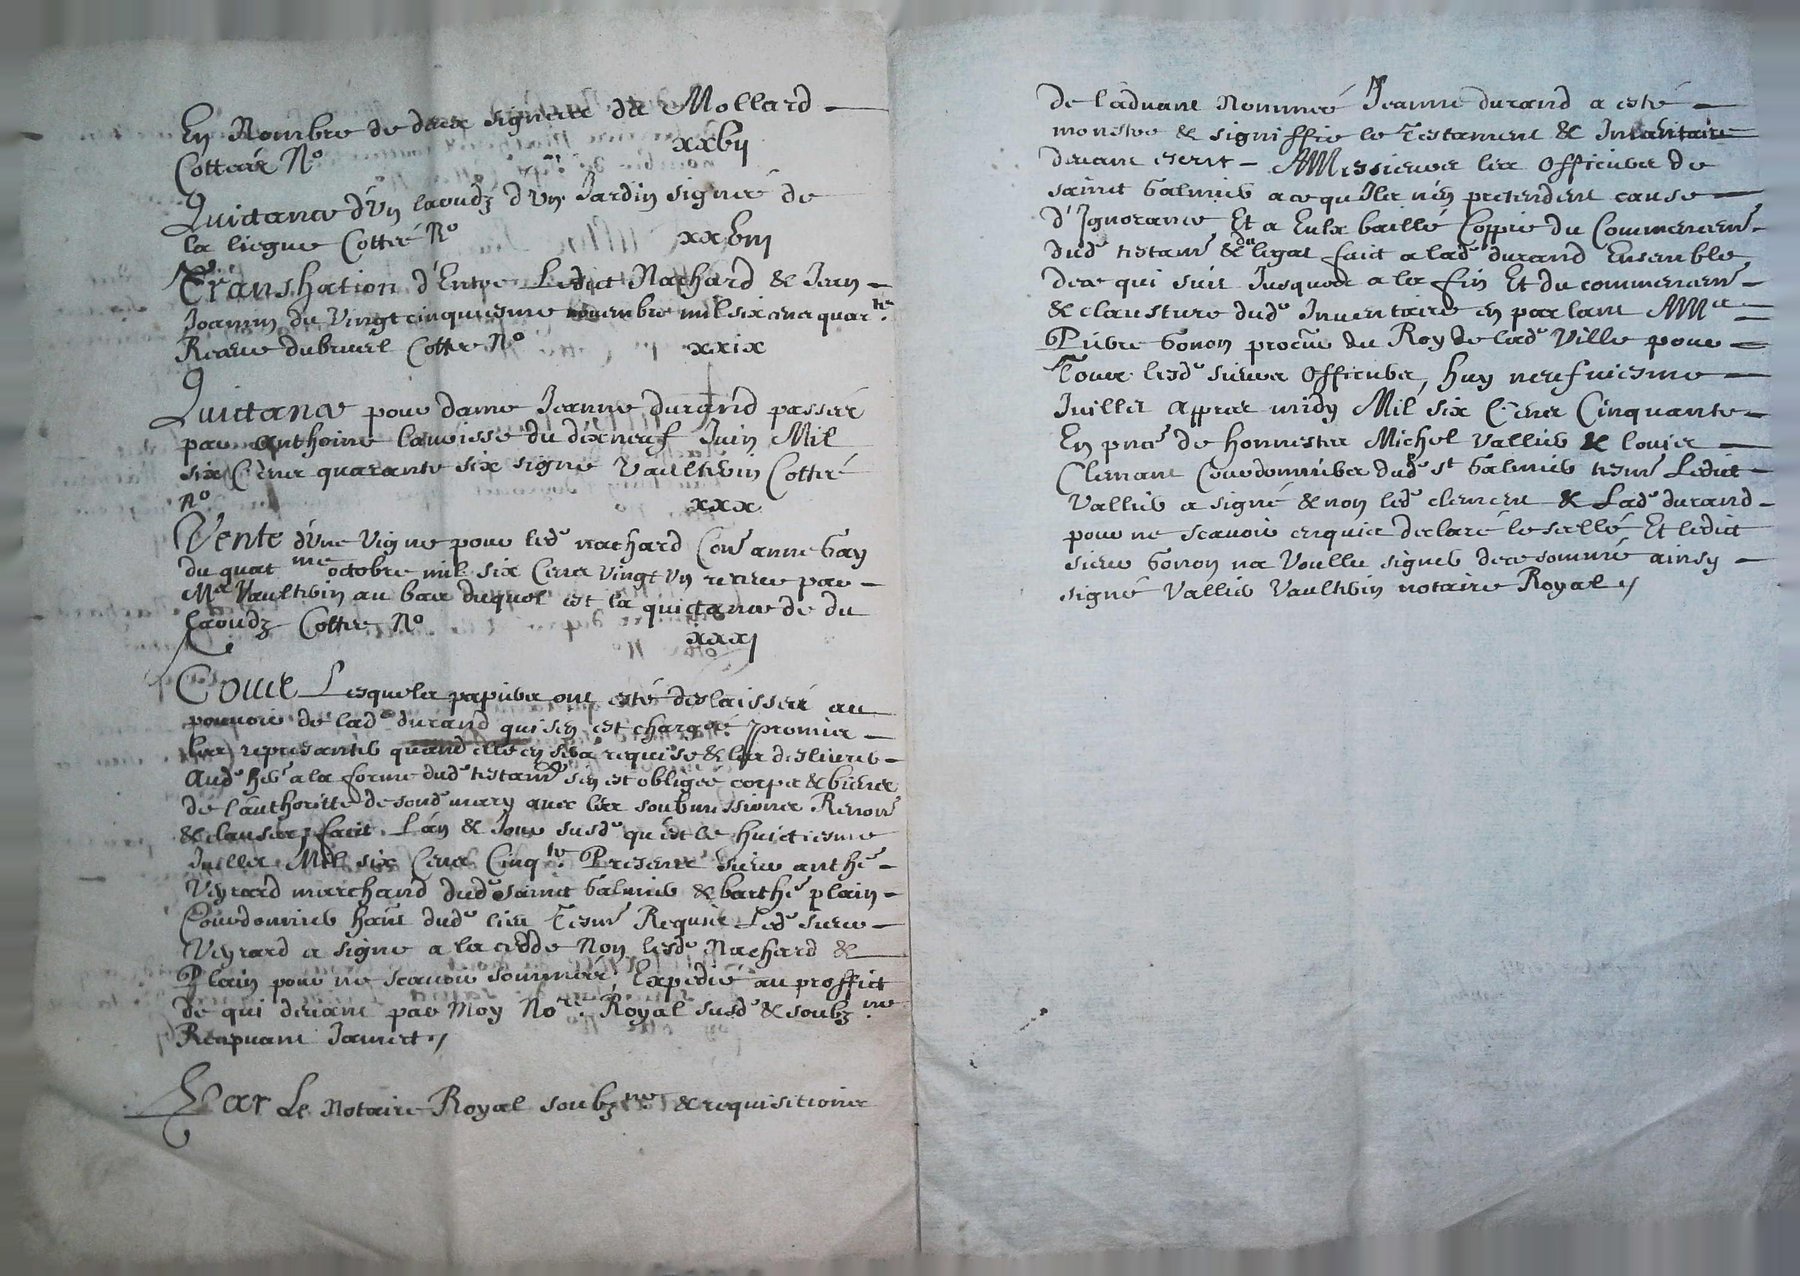 En Nombre de deux signees du Mollard
Cottées N° xxbij
Quictance d'un laoudz d'un Jardin signée de
la liegue Cottée N° xxbiij
Transhation d'Entre Ledict Nachard & Jean
Joannin du Vingtcinquiesme novembre mil six cens quar.te
Receue dubruel Cottee N° xxix
Quictance pour dame Jeanne durand passée
par anthoine lavoisse du dixneuf Juin Mil
six Cens quarante six signé Vaultrin Cotté
N° xxx
Vente d'une Vigne pour led. nachard Con. anne Gay
du quat.me octobre mil six Cens Vingt Un receue par
Me Vaultrin au bas duquel est la quictance de du
laoudz Cottee N° xxxj
Tous Lesquels papiers ont esté delaissés au
pouvoir de lad.e durand qui s'en est chargée promis
les representer quand elle en sera requise & les deslivrer
Aud. her. a la forme dud. testam.t s'en est obligée corps & biens
de l'authoritte de sond. mary avec les soubmissions Renon.
& clauses, faict L'an & Jour susd. qu'est le huictiesme
Juillet Mil six Cens Cinq.te Presens sieur anth.e
Veyrard marchand dud. saint Galmier & barth.e plain
Courdonnier hant dud. lieu Tesm. Requis Led. sieur
Veyrard a signe a la cedde Non lesd. Nachard &
Plain pour ne scavoir sommés, Expédié au proffict
de qui devant par Moy No.re Royal susd & soubz.ne
Recepvant Jamet
Par Le Notaire Royal soubz.ne & requisitions
De l'advant Nommée Jeanne durand a esté
monstre & signiffié le Testament & Inventaire
devant escrit A Messieurs les Officiers de
saint Galmier a ce qu'Ils n'en pretendent cause
d'Ignorance Et a Eulx baillé Coppie du Commencem.t
dud. testam.t & du legat faict a lad. durand Ensemble
de ce qui suit Jusques a la fin Et du commencem.t
& clausture dud. Inventaire en parlant A Me
Pierre Gonon procur. du Roy de lad. Ville pour
Tous lesd. sieurs Officiers, huy neufviesme
Juillet Appres midy Mil six Cens Cinquante
En pnce de honnestes Michel Vallier & louis
Clemant Courdonniers dud. st Galmier tesm. Ledict
Vallier a signé & non led. clement & Lad. durand
pour ne scavoir enquis declaré le sellé Et ledict
sieur Gonon na Voullu signer de ce sommé ainsy
signé Vallier Vaultrin notaire Royal